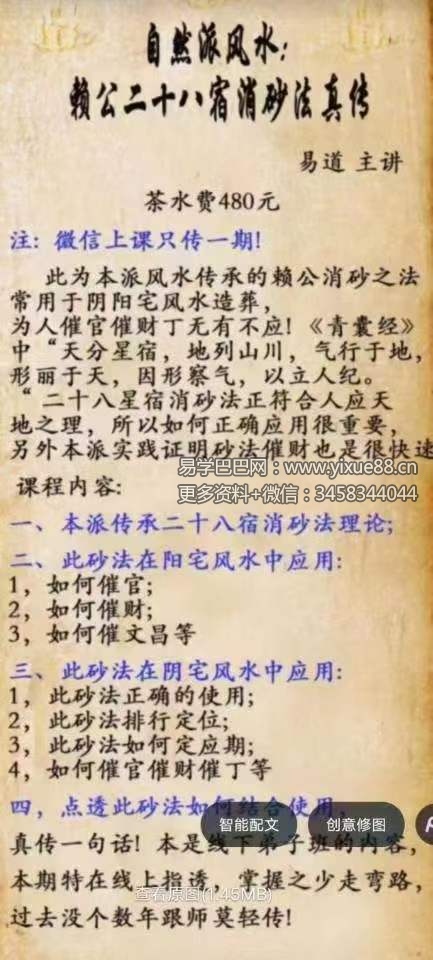 自然派风水：
赖公二十八宿消砂法真传
易道 主讲
茶水费480元
注：微信上课只传一期！
此为本派风水传承的赖公消砂之法
常用于阴阳宅风水造葬，
为人催官催财丁无有不应！《青囊经》
中“天分星宿，地列山川，气行于地，
形丽于天，因形察气，以立人纪。
“二十八星宿消砂法正符合人应天
地之理，所以如何正确应用很重要，
另外本派实践证明砂法催财也是很快速
易学巴巴网：www.yixue88.cn
更多资料+微信：3458344044
课程内容：
一、本派传承二十八宿消砂法理论；
二、此砂法在阳宅风水中应用：
1，如何催官；
2，如何催财；
3，如何催文昌等
三、此砂法在阴宅风水中应用：
1，此砂法正确的使用；
2，此砂法排行定位；
3，此砂法如何定应期；
4，如何催官催财催丁等
四，点透此砂法如何结合使用，
智能配文
创意修图
真传一句话！本是线下弟子班的内容，
本期特在线上指诱，掌握之少走弯路，
查看原图(1.45MB)
过去没个数年跟师莫轻传！